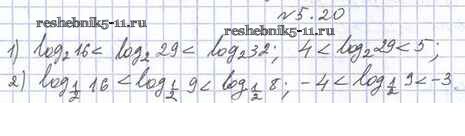 reshebnik5-11.ru
№5.20
reshebnik5-11.ru
1) log₂16 < log₂29 < log₂32; 4 < log₂29 < 5;
2) log_{1/2} 16 < log_{1/2} 9 < log_{1/2} 8; -4 < log_{1/2} 9 < -3.